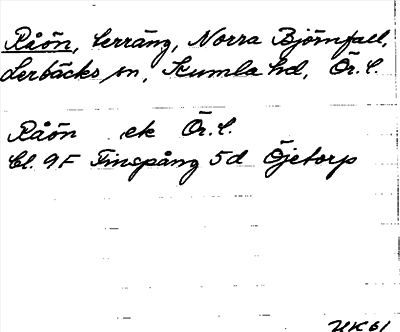 Råön, terräng, Norra Björnfall,
Lerbäcks sn, Kumla hd, Ör. l.
Råön ek Ör. l.
bl. 9F Finspång 5d Öjetorp
UK61